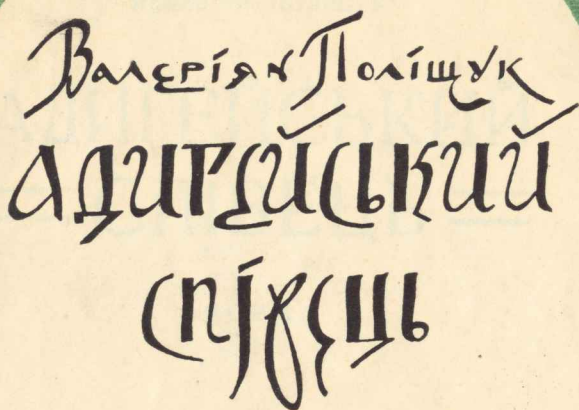 Валеріян Поліщук
адигейський
співець